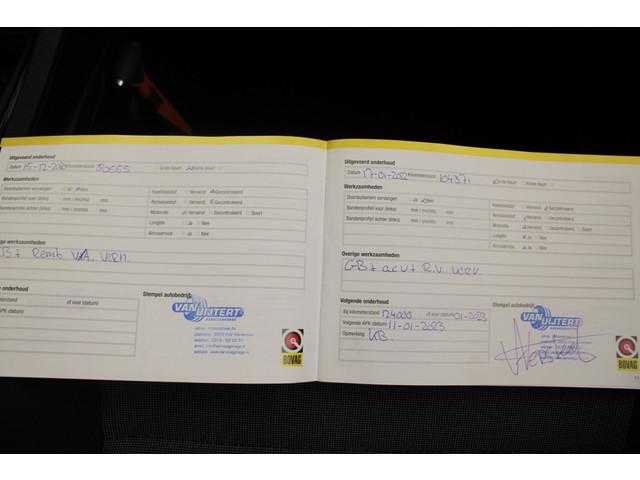 Uitgevoerd onderhoud
Datum 15-12-202 Kilometerstand 80555 Grote beurt Kleine beurt
Werkzaamheden
Distributieriem vervangen Ja Nee
Bandenprofiel voor (links) mm (rechts) mm
Bandenprofiel achter (links) mm (rechts) mm
Koelvloeistof Ververst Gecontroleerd
Remvloeistof Ververst Gecontroleerd
Motorolie Ververst Gecontroleerd Soort
Longlife Ja Nee
Aircoservice Ja Nee
ige werkzaamheden
B+ Remb V.A. Vern.
de onderhoud
terstand of voor (datum)
PK (datum)
Stempel autobedrijf
VAN UIJTERT
BOVAG
Uitgevoerd onderhoud
Datum 17-01-2022 Kilometerstand 104371 Grote beurt Kleine beurt
Werkzaamheden
Distributieriem vervangen Ja Nee
Bandenprofiel voor (links) mm (rechts) mm
Bandenprofiel achter (links) mm (rechts) mm
Koelvloeistof Ververst Gecontroleerd
Remvloeistof Ververst Gecontroleerd
Motorolie Ververst Gecontroleerd Soort
Longlife Ja Nee
Aircoservice Ja Nee
Overige werkzaamheden
GB + accu + R.V. verv.
Volgende onderhoud
Bij kilometerstand 124000 of voor (datum) 01-2023
Volgende APK (datum) 11-01-2023
Opmerking KB.
Stempel autobedrijf
VAN UIJTERT
BOVAG
11